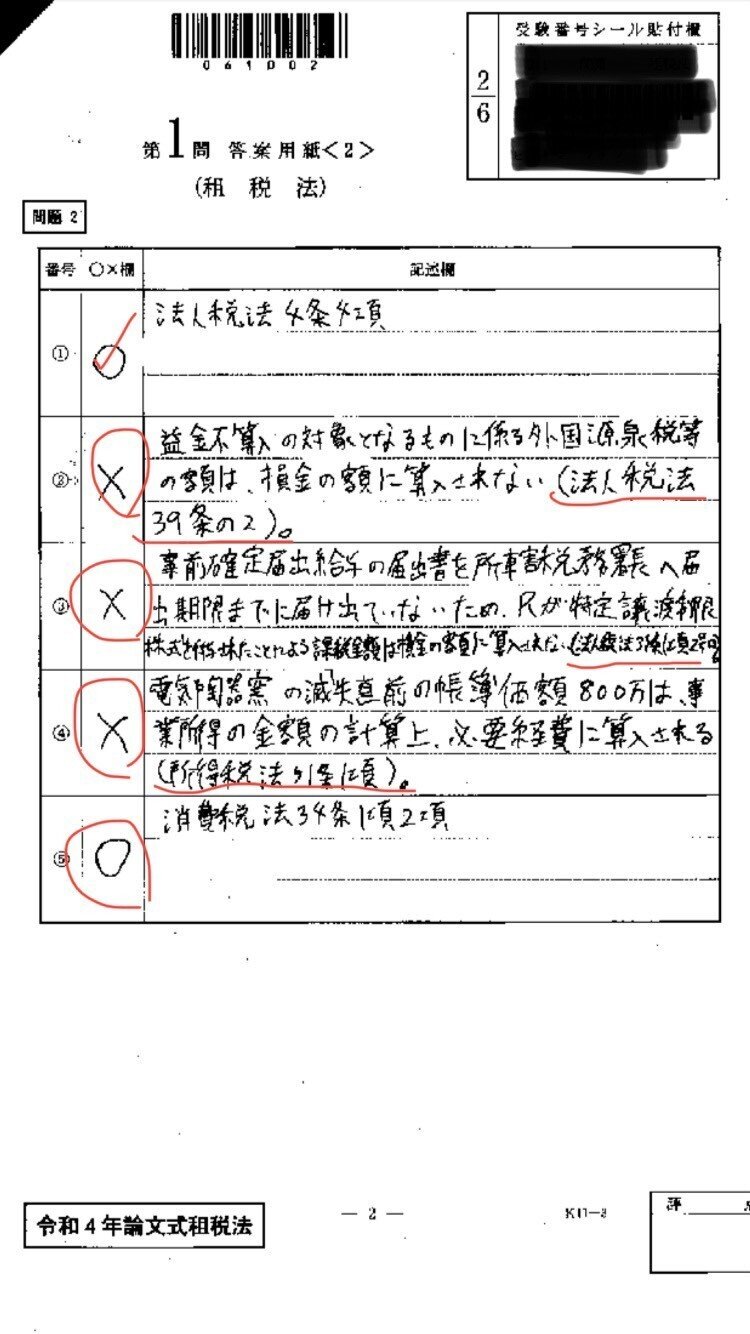 061002
受験番号シール貼付欄
2
6
第1問 答案用紙<2>
(租税法)
問題 2
番号 ○×欄 記述欄
① ○ 法人税法4条4項
② × 益金不算入の対象となるものに係る外国源泉税等
の額は、損金の額に算入されない(法人税法
39条の2)。
③ × 事前確定届出給与の届出書を所轄税務署長へ届
出期限までに届け出ていないため、Rが特定譲渡制限
株式を
損金の額に算入されない(法人税法34条1項2号
④ × 電気陶器窯の滅失直前の帳簿価額800万は、事
業所得の金額の計算上、必要経費に算入される
(所得税法51条1項)。
⑤ ○ 消費税法34条1項2項
令和4年論文式租税法
— 2 —
評